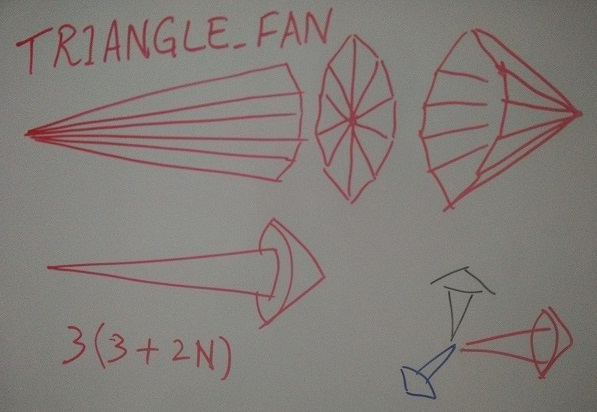 TRIANGLE_FAN
3(3+2N)